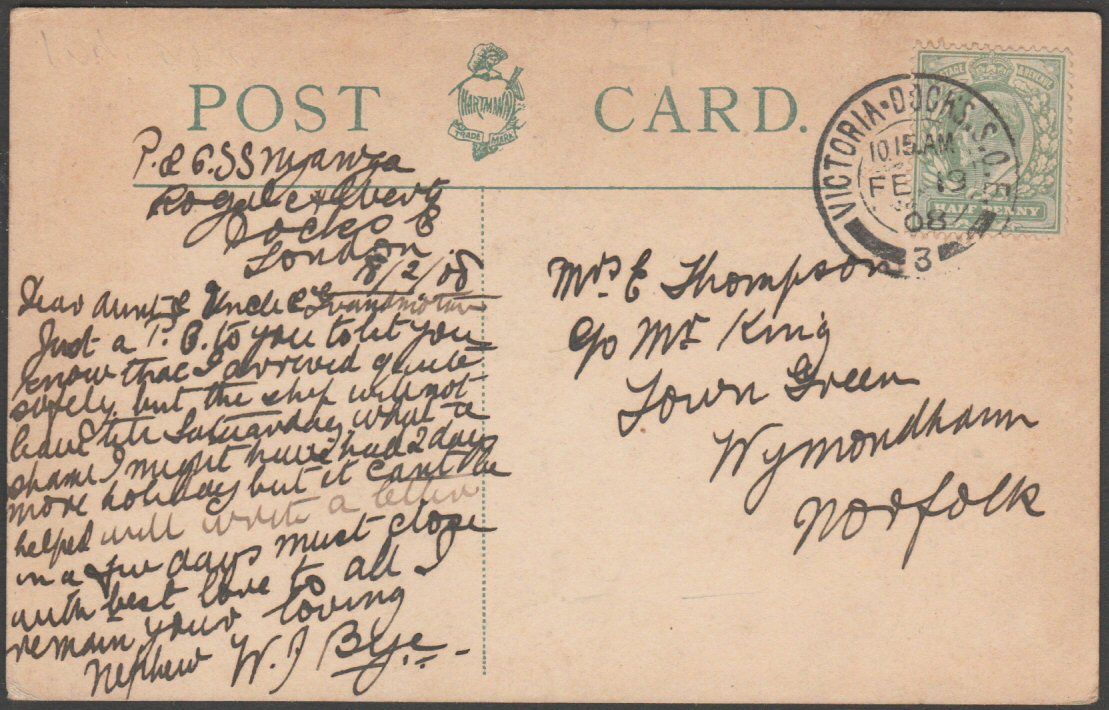 POST CARD.
HARTMANN
TRADE MARK
VICTORIA·DOCKS.S.O.E.
10.15 AM
FE 19
08
3
POSTAGE & REVENUE
HALF PENNY
P. & O. SS Nyanza
Royal Albert
Docks E
London
18/2/08
Dear Aunt & Uncle & Grandmother
Just a P.C. to you to let you
know that I arrived quite
safely. but the ship will not
leave till Saturday what a
shame I might have had 2 days
more holiday but it cant be
helped will write a letter
in a few days must close
with best love to all I
remain your loving
Nephew W. J Bye.
Mrs E Thompson
c/o Mr King
Town Green
Wymondham
Norfolk